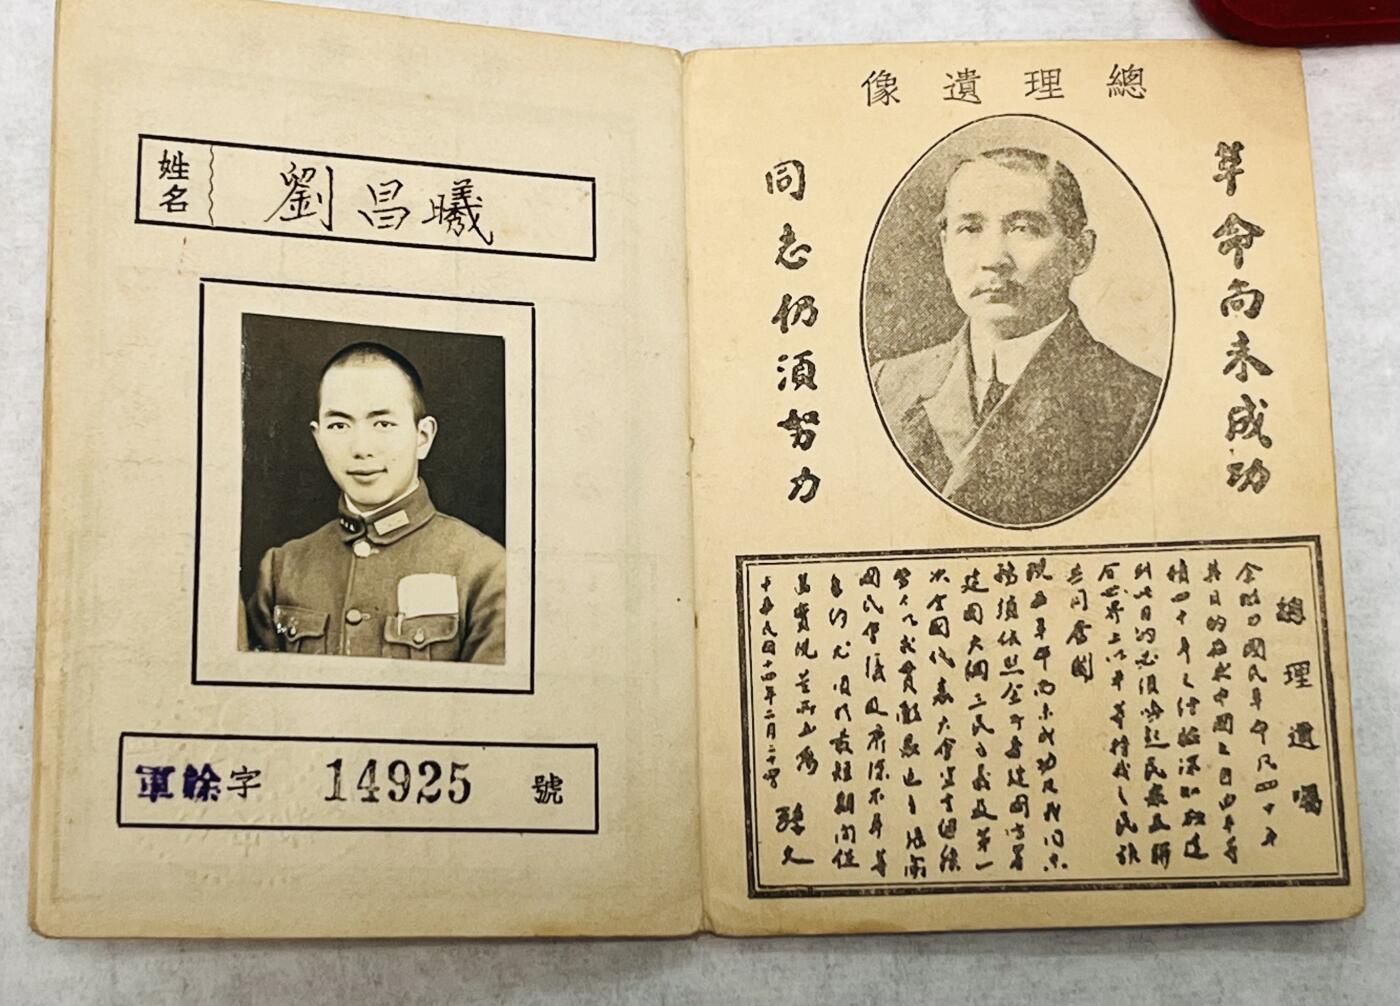 總理遺像
革命尚未成功
同志仍須努力
總理遺囑
余致力國民革命凡四十年
其目的在求中國之自由平等
積四十年之經驗深知欲達
到此目的必須喚起民衆及聯
合世界上以平等待我之民族
共同奮鬥
現在革命尚未成功凡我同志
務須依照余所著建國方略
建國大綱三民主義及第一
次全國代表大會宣言繼續
努力以求貫徹最近主張開
國民會議及廢除不平等
條約尤須於最短期間促
其實現是所至囑
中華民國十四年二月二十四日
孫文
姓名 劉昌曦
軍餘字 14925 號